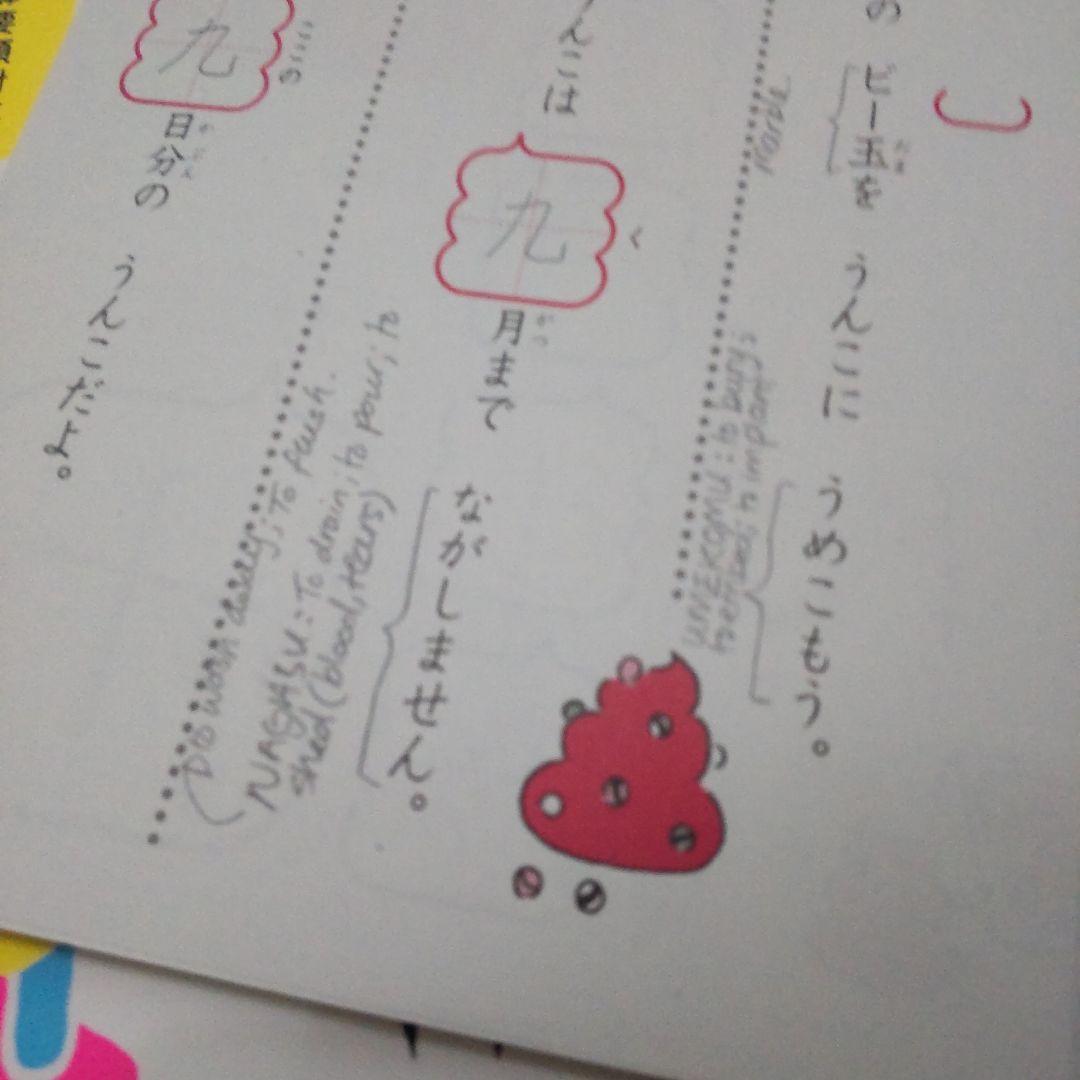 の ビー玉を うんこに うめこもう。
たま
marble
UMEKOMU: to bury;
to embed; to implant
んこは 九月まで ながしません。
く がつ
NAGASU: To drain; to pour; to
shed (blood, tears)
(To wash away; To flush.
九日分の うんこだよ。